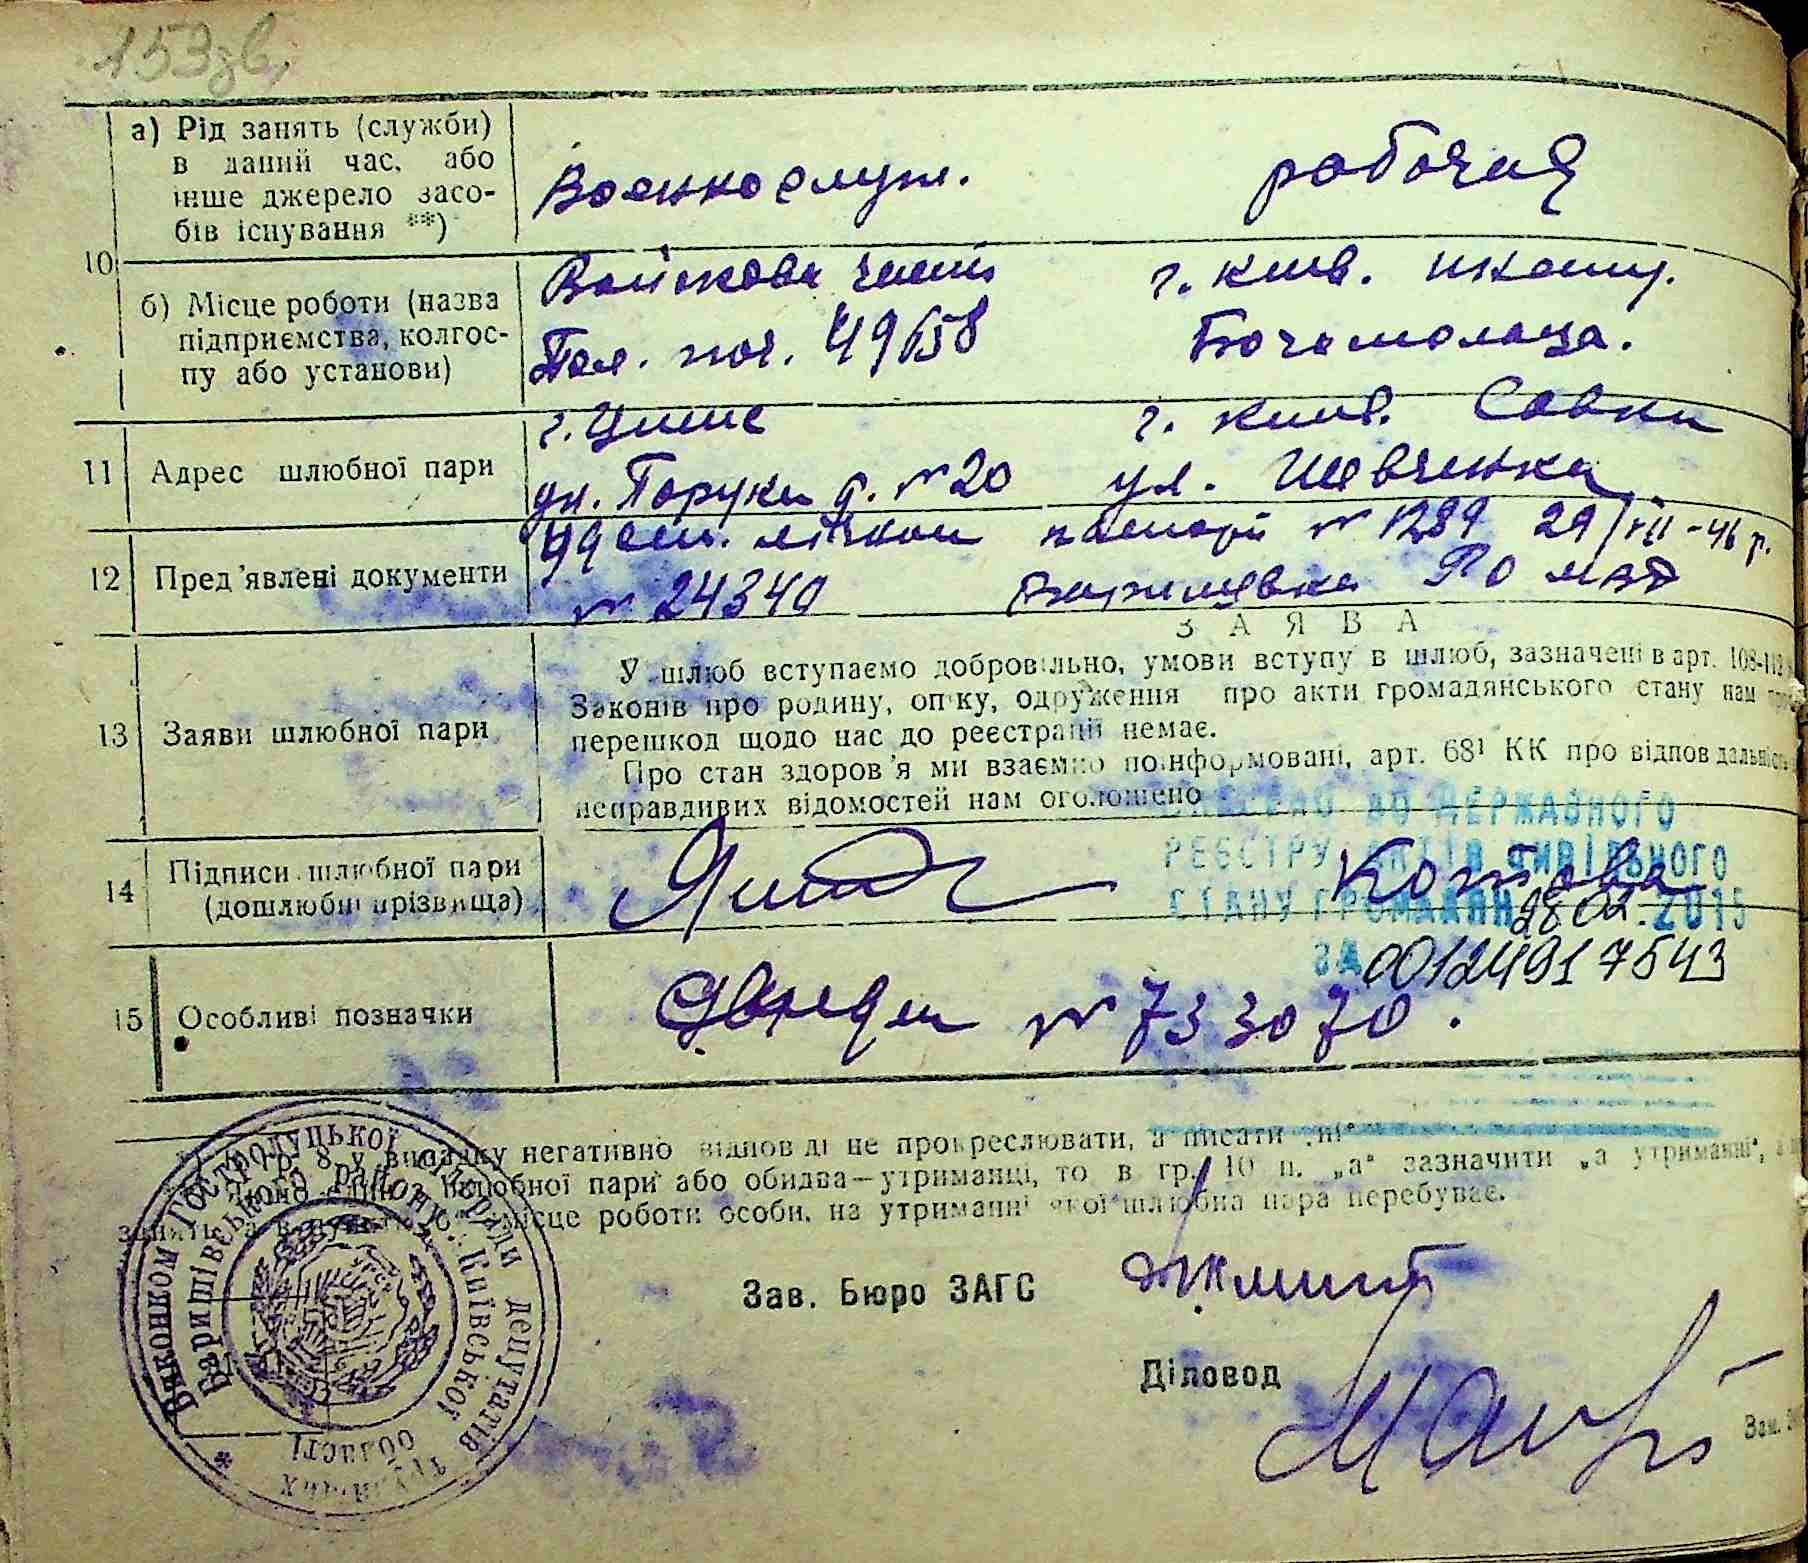 153зв.
а) Рід занять (служби)
в даний час, або
інше джерело засо-
бів існування **)
Военнослуж.
рабочая
10
б) Місце роботи (назва
підприємства, колгос-
пу або установи)
Войскова часть
Пол. поч. 49658
г. Киев.
11
Адрес шлюбної пари
г.
ул. д. № 20
г. Киев. Совки
ул. Шевченка
12
Пред'явлені документи
№ 24340
паспорт № 1289 29/VII-46 р.
РО МВД
13
Заяви шлюбної пари
ЗАЯВА
У шлюб вступаємо добровільно, умови вступу в шлюб, зазначені в арт. 108-112
Законів про родину, опіку, одруження про акти громадянського стану нам
перешкод щодо нас до реєстрації немає.
Про стан здоров'я ми взаємно поінформовані, арт. 68¹ КК про відповідальність
неправдивих відомостей нам оголошено
14
Підписи шлюбної пари
(дошлюбні прізвища)
Котова
ВНЕСЕНО ДО ДЕРЖАВНОГО
РЕЄСТРУ АКТІВ ЦИВІЛЬНОГО
СТАНУ ГРОМАДЯН 28.02.2015
ЗА 00124917543
15
Особливі позначки
№ 733070.
гр. 8 у випадку негативної відповіді не прокреслювати, а писати „ні“
шлюбної пари або обидва—утриманці, то в гр. 10 п. „а“ зазначити „а утриманні“,
місце роботи особи, на утриманні якої шлюбна пара перебуває.
Виконком Гостролуцької сільради депутатів трудящих
Баришівського району Київської області
Зав. Бюро ЗАГС
Діловод
Зам.